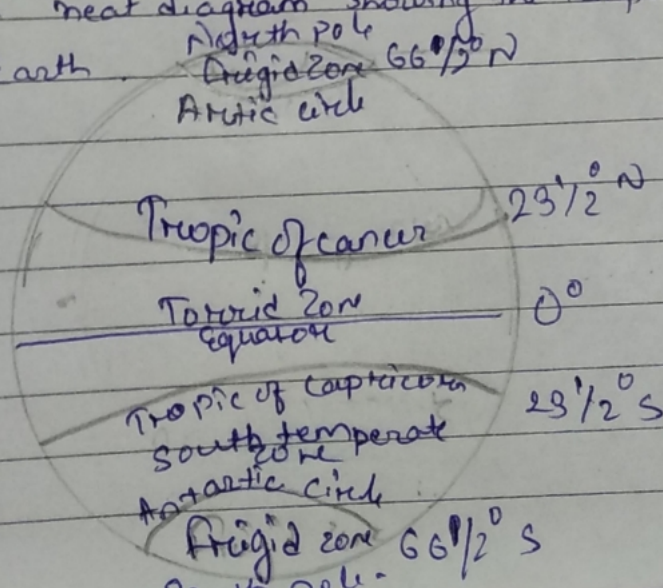 neat diagram showing the
arth.
North pole
Frigid Zone 66 1/2° N
Arctic circle
23 1/2° N
Tropic of cancer
Torrid Zone
0°
Equator
Tropic of Capricorn
23 1/2° S
South temperate
zone
Antartic circle
Frigid zone 66 1/2° S
pole.